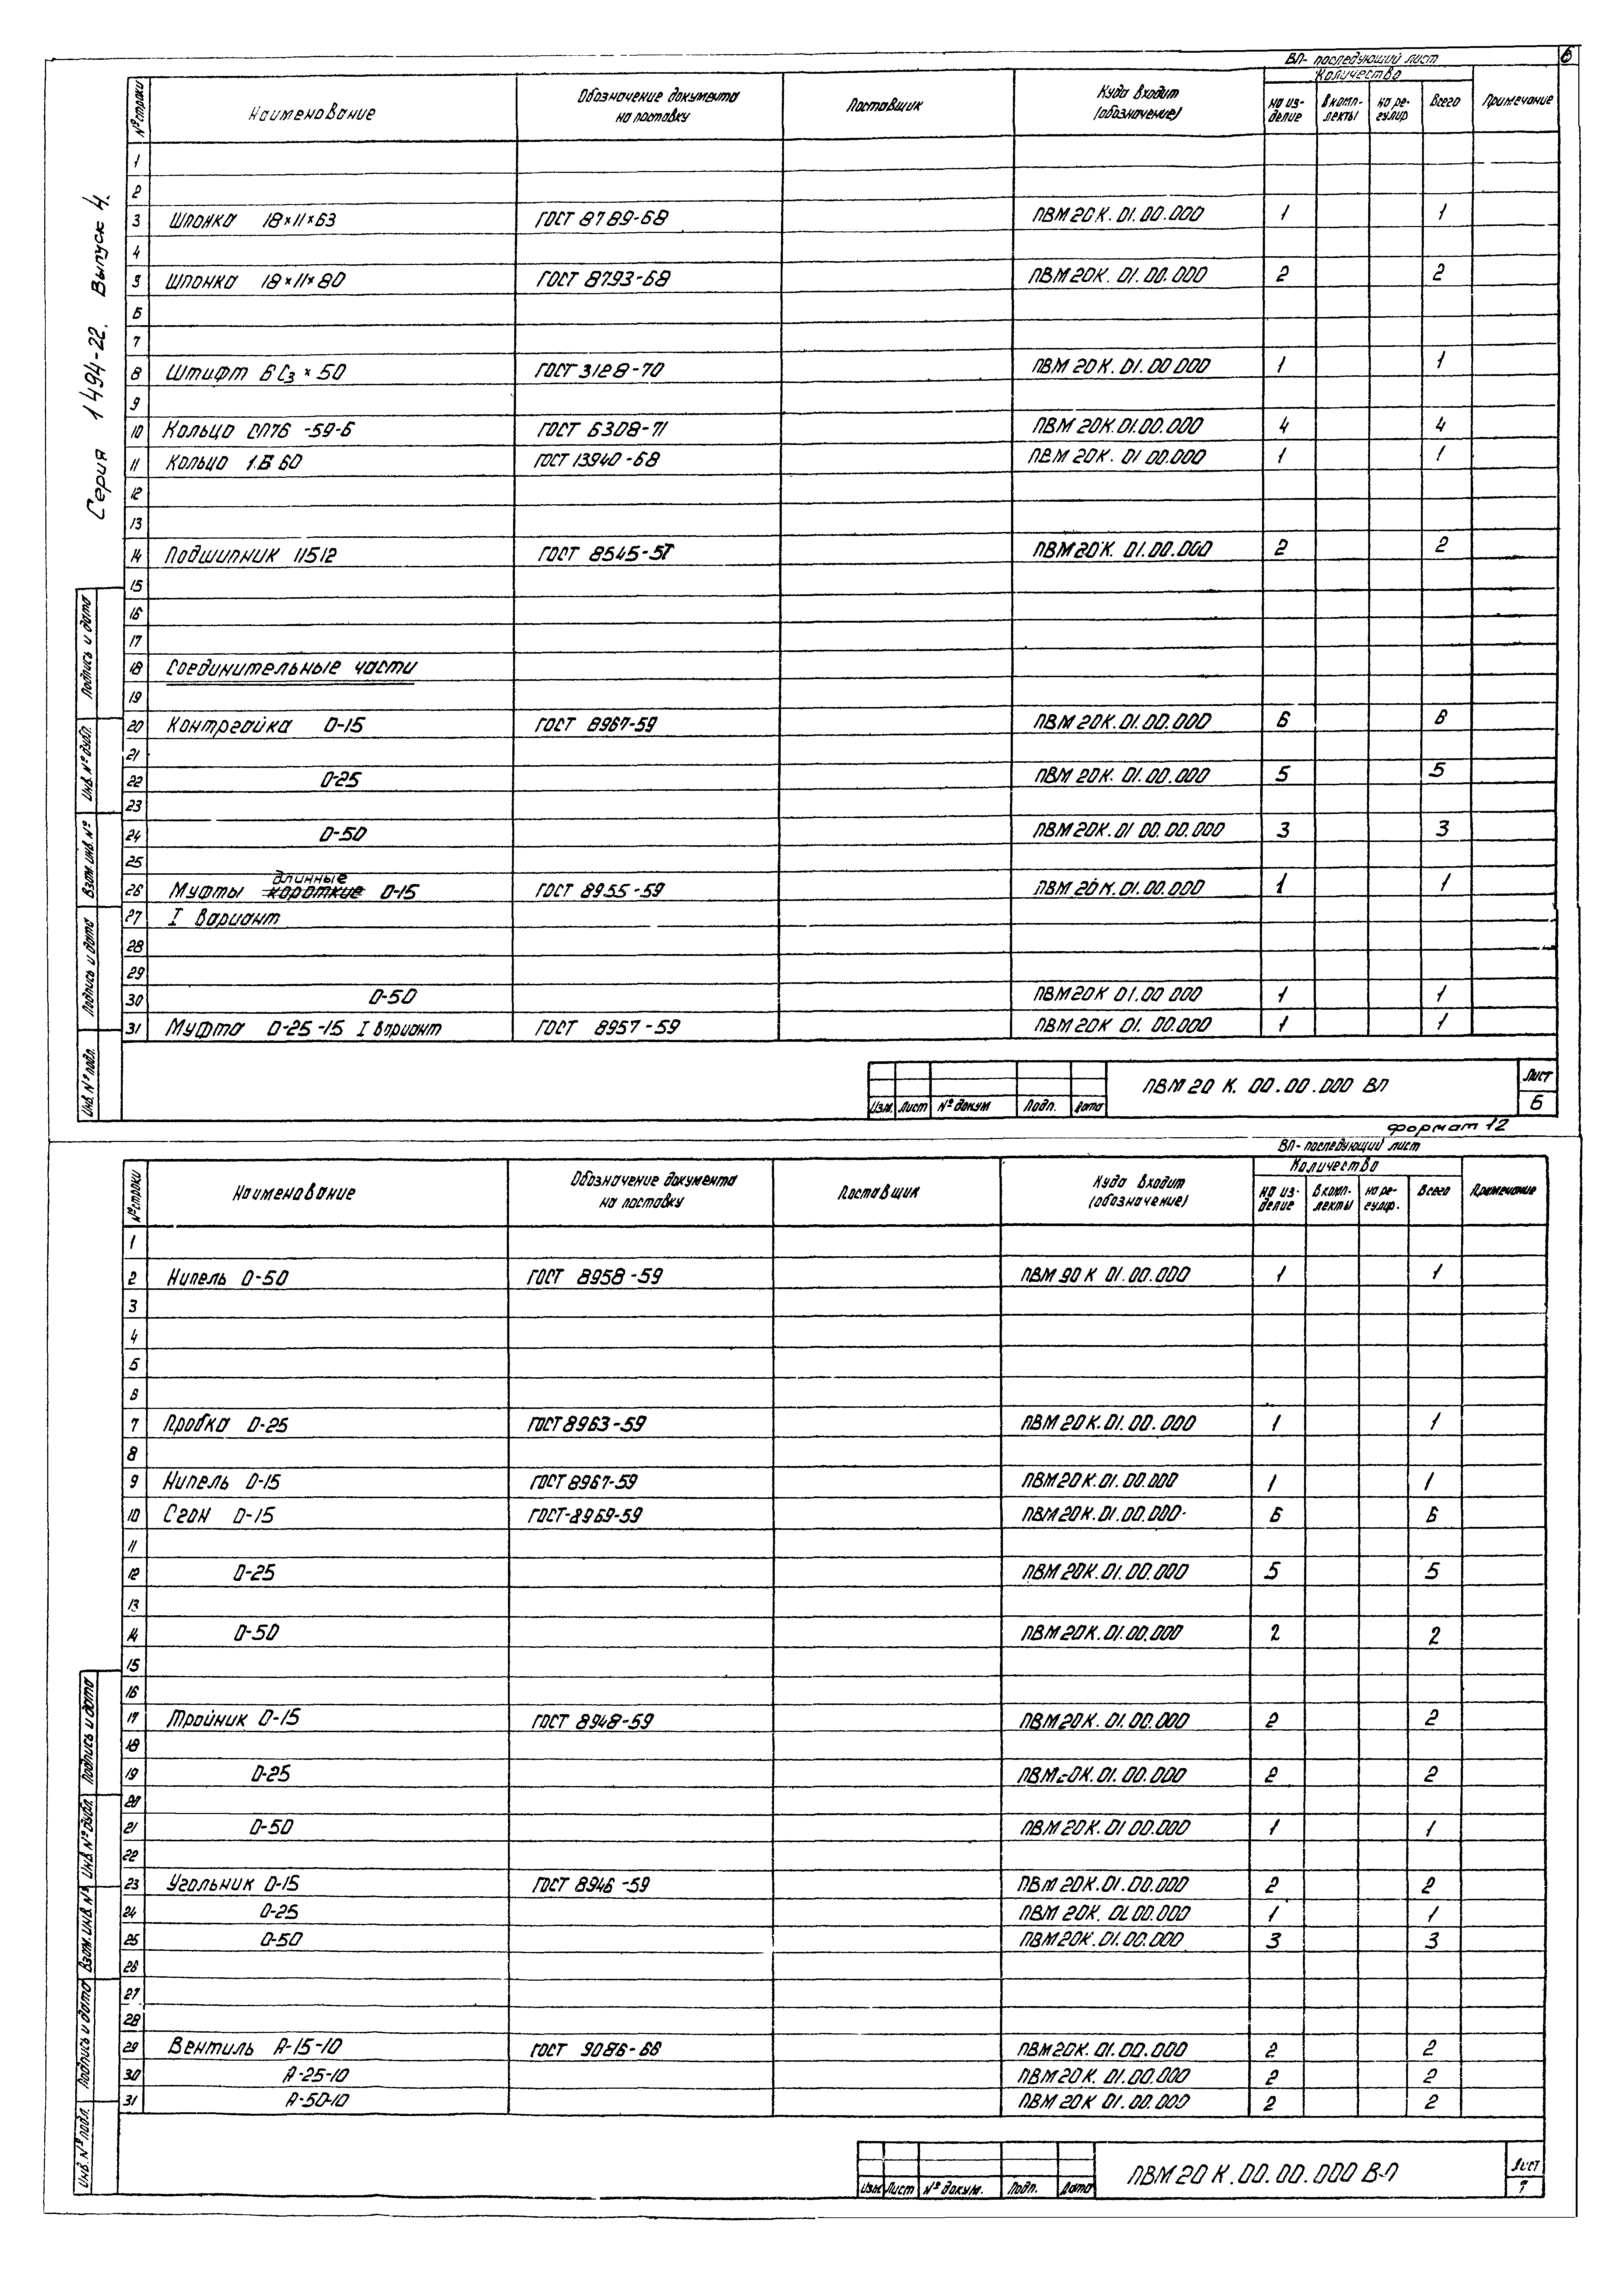 6
Серия 1494-22. Выпуск 4.
ВП- последующий лист
№ строки Наименование Обозначение документа на поставку Поставщик Куда входит (обозначение) Количество на из-делие в комп-лекты на ре-гулир Всего Примечание
1
2
3 Шпонка 18×11×63 ГОСТ 8789-68 ПВМ 20 К. 01. 00. 000 1 1
4
5 Шпонка 18×11×80 ГОСТ 8793-68 ПВМ 20К. 01. 00. 000 2 2
6
7
8 Штифт 6С3 × 50 ГОСТ 3128-70 ПВМ 20К. 01. 00 000 1 1
9
10 Кольцо СП76 -59-6 ГОСТ 6308-71 ПВМ 20К.01.00.000 4 4
11 Кольцо 1.Б 60 ГОСТ 13940 -68 ПВМ 20К. 01 00.000 1 1
12
13
14 Подшипник 11512 ГОСТ 8545-57 ПВМ 20К. 01.00.000 2 2
15
16
17
18 Соединительные части
19
20 Контргайка О-15 ГОСТ 8967-59 ПВМ 20К. 01. 00.000 6 6
21
22 О-25 ПВМ 20К. 01. 00.000 5 5
23
24 О-50 ПВМ 20К. 01 00. 00.000 3 3
25
26 Муфты короткие длинные О-15 ГОСТ 8955 -59 ПВМ 20К.01.00.000 1 1
27 I вариант
28
29
30 О-50 ПВМ 20К 01.00 000 1 1
31 Муфта О-25 -15 I вариант ГОСТ 8957 -59 ПВМ 20К 01. 00.000 1 1
Подпись и дата
Инв. № дубл.
Взам. инв. №
Подпись и дата
Инв. № подл.
Изм. Лист № докум Подп. Дата
ПВМ 20 К. 00.00.000 ВП
Лист
6
Формат 12
ВП- последующий лист
№ строки Наименование Обозначение документа на поставку Поставщик Куда входит (обозначение) Количество на из-делие в комп-лекты на ре-гулир. Всего Примечание
1
2 Нипель О-50 ГОСТ 8958 -59 ПВМ 90 К 01.00.000 1 1
3
4
5
6
7 Пробка О-25 ГОСТ 8963-59 ПВМ 20 К.01. 00. 000 1 1
8
9 Нипель О-15 ГОСТ 8967-59 ПВМ 20 К.01.00.000 1 1
10 Сгон О-15 ГОСТ-8969-59 ПВМ 20К.01.00.000 6 6
11
12 О-25 ПВМ 20К.01.00.000 5 5
13
14 О-50 ПВМ 20К.01.00.000 2 2
15
16
17 Тройник О-15 ГОСТ 8948-59 ПВМ 20К. 01. 00.000 2 2
18
19 О-25 ПВМ 20К. 01. 00.000 2 2
20
21 О-50 ПВМ 20К. 01 00.000 1 1
22
23 Угольник О-15 ГОСТ 8946 -59 ПВМ 20К.01.00.000 2 2
24 О-25 ПВМ 20К. 01. 00.000 1 1
25 О-50 ПВМ 20К.01.00.000 3 3
26
27
28
29 Вентиль А-15-10 ГОСТ 9086-66 ПВМ 20К. 01. 00.000 2 2
30 А-25-10 ПВМ 20К. 01.00.000 2 2
31 А-50-10 ПВМ 20К 01.00.000 2 2
Подпись и дата
Инв. № дубл.
Взам. инв. №
Подпись и дата
Инв. № подл.
Изм. Лист № докум. Подп. Дата
ПВМ 20 К. 00. 00. 000 ВП
Лист
7